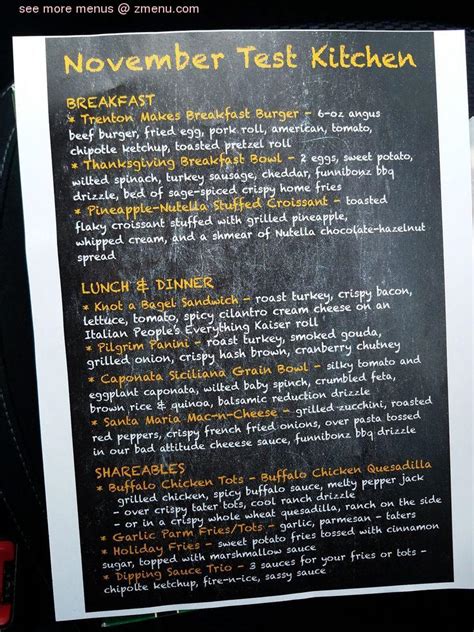 see more menus @ zmenu.com
November Test Kitchen
BREAKFAST
* Trenton Makes Breakfast Burger - 6-oz angus
beef burger, fried egg, pork roll, american, tomato,
chipotle ketchup, toasted pretzel roll
* Thanksgiving Breakfast Bowl - 2 eggs, sweet potato,
wilted spinach, turkey sausage, cheddar, funnibonz bbq
drizzle, bed of sage-spiced crispy home fries
* Pineapple-Nutella Stuffed Croissant - toasted
flaky croissant stuffed with grilled pineapple,
whipped cream, and a shmear of Nutella chocolate-hazelnut
spread
LUNCH & DINNER
* Knot a Bagel Sandwich - roast turkey, crispy bacon,
lettuce, tomato, spicy cilantro cream cheese on an
Italian People's Everything Kaiser roll
* Pilgrim Panini - roast turkey, smoked gouda,
grilled onion, crispy hash brown, cranberry chutney
* Caponata Siciliana Grain Bowl - silky tomato and
eggplant caponata, wilted baby spinch, crumbled feta,
brown rice & quinoa, balsamic reduction drizzle
* Santa Maria Mac-n-Cheese - grilled zucchini, roasted
red peppers, crispy french fried onions, over pasta tossed
in our bad attitude cheese sauce, funnibonz bbq drizzle
SHAREABLES
* Buffalo Chicken Tots - Buffalo Chicken Quesadilla
grilled chicken, spicy buffalo sauce, melty pepper jack
- over crispy tater tots, cool ranch drizzle
- or in a crispy whole wheat quesadilla, ranch on the side
* Garlic Parm Fries/Tots - garlic, parmesan - taters
* Holiday Fries - sweet potato fries tossed with cinnamon
sugar, topped with marshmallow sauce
* Dipping Sauce Trio - 3 sauces for your fries or tots -
chipotle ketchup, fire-n-ice, sassy sauce